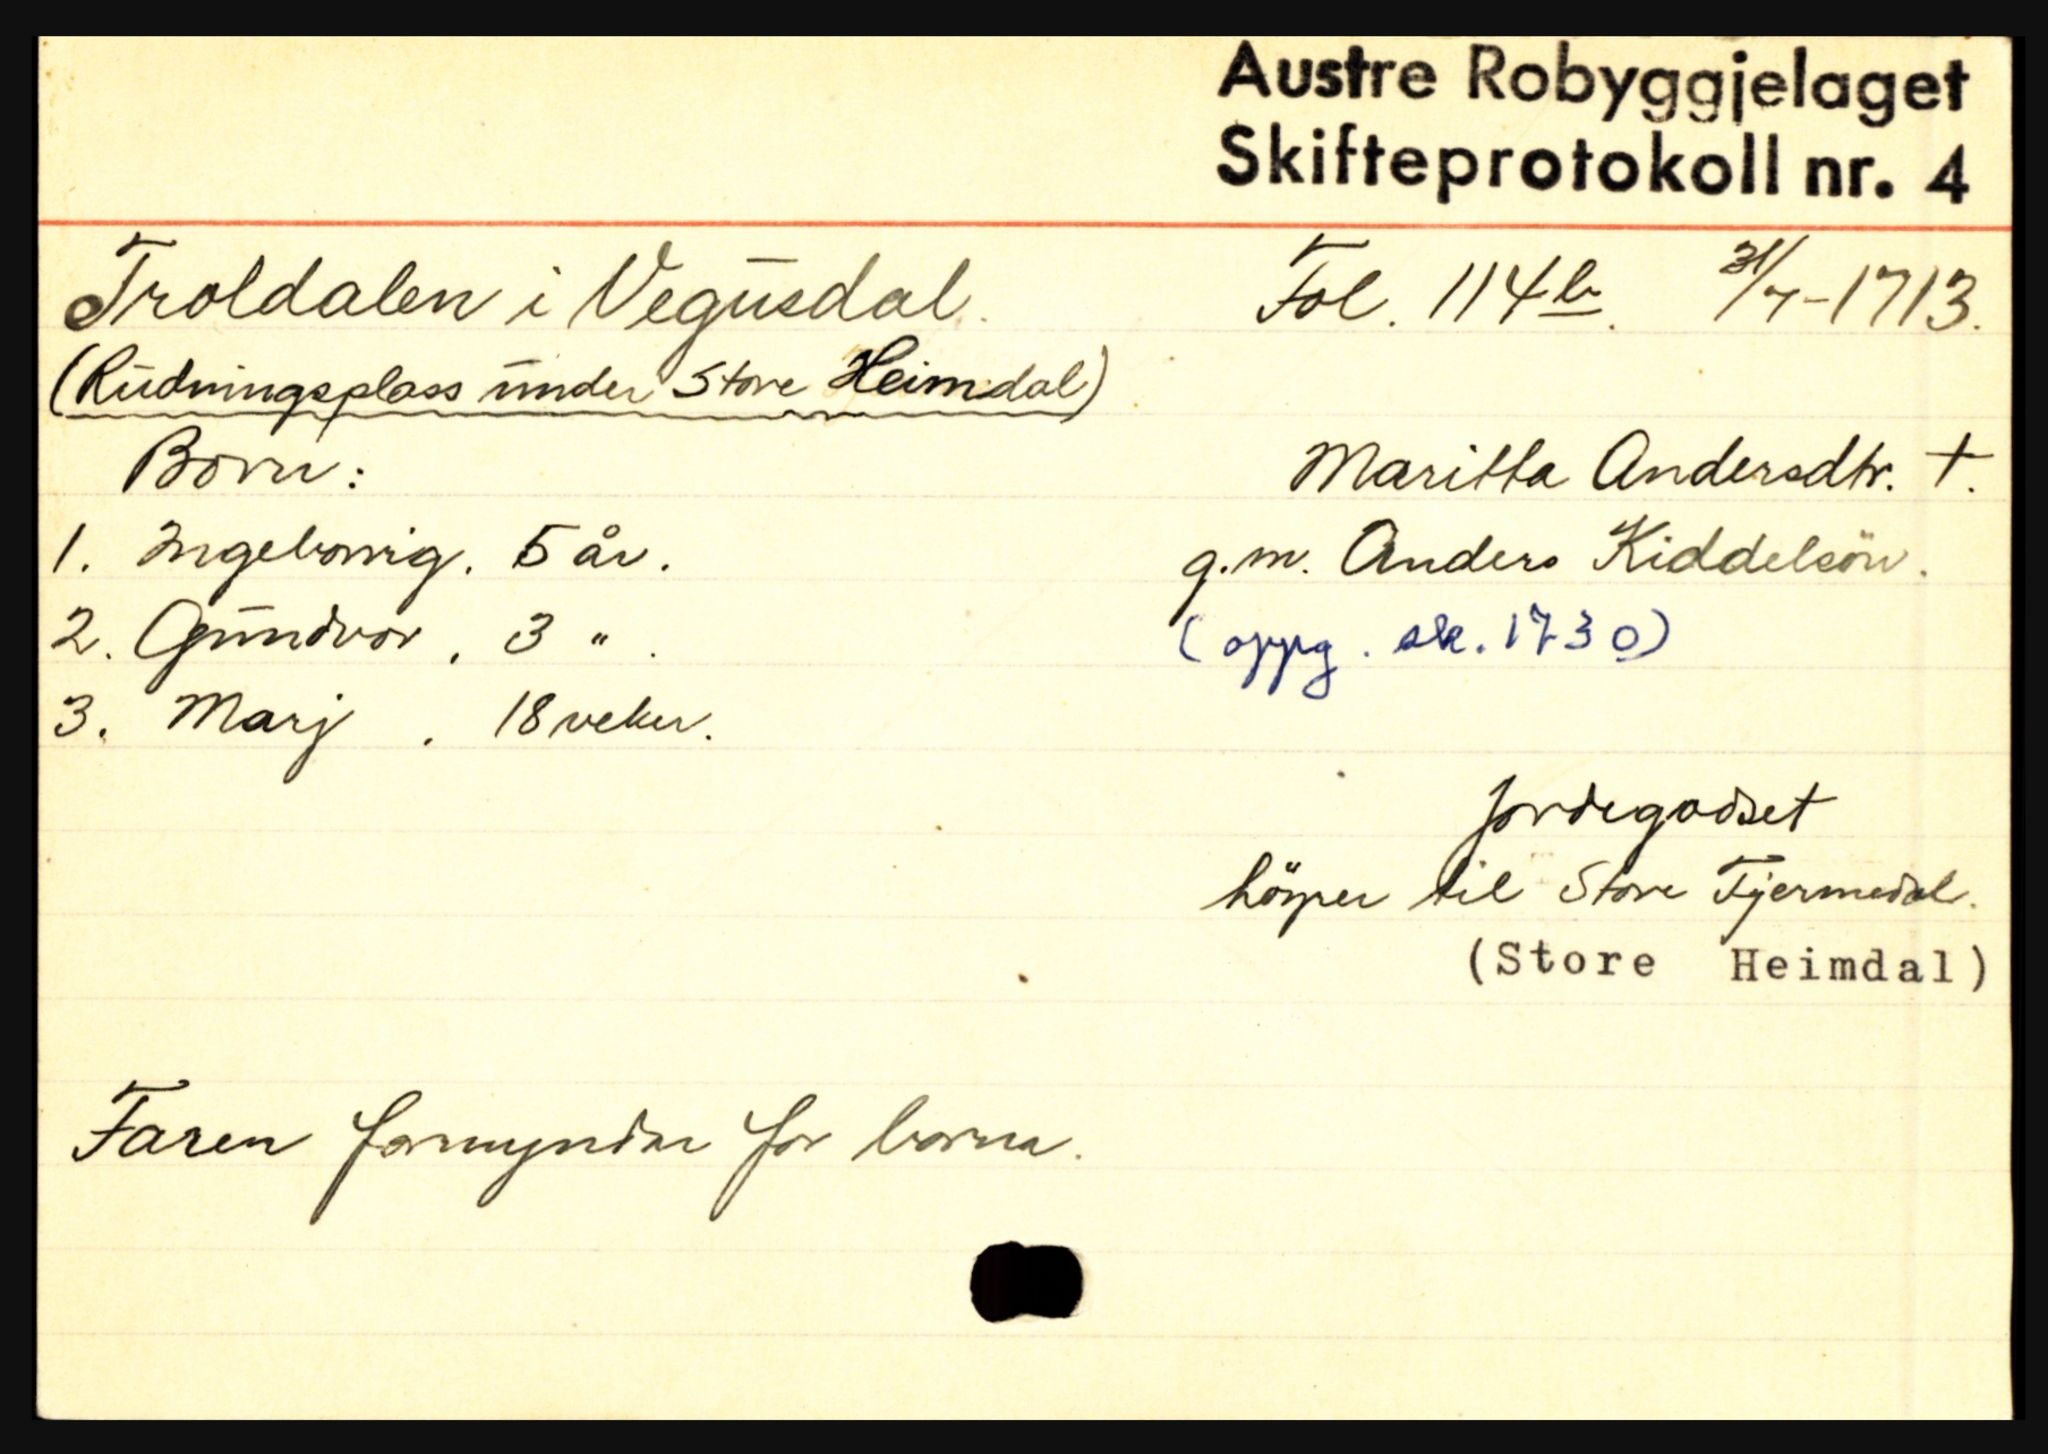 Austre Robyggjelaget
Skifteprotokoll nr. 4
Troldalen i Vegusdal. Fol. 114b. 31/7-1713.
(Rudningsplass under Store Heimdal)
Born: Maritta Andersdtr. †.
1. Ingeborrig. 5 år. g.m. Anders Kiddelsön.
2. Gundvor, 3 " . (oppg. sk. 1730)
3. Marj . 18 veker.
Jordegodset
höyrer til Store Tjermedal.
(Store Heimdal)
Faren formyndar for borna.